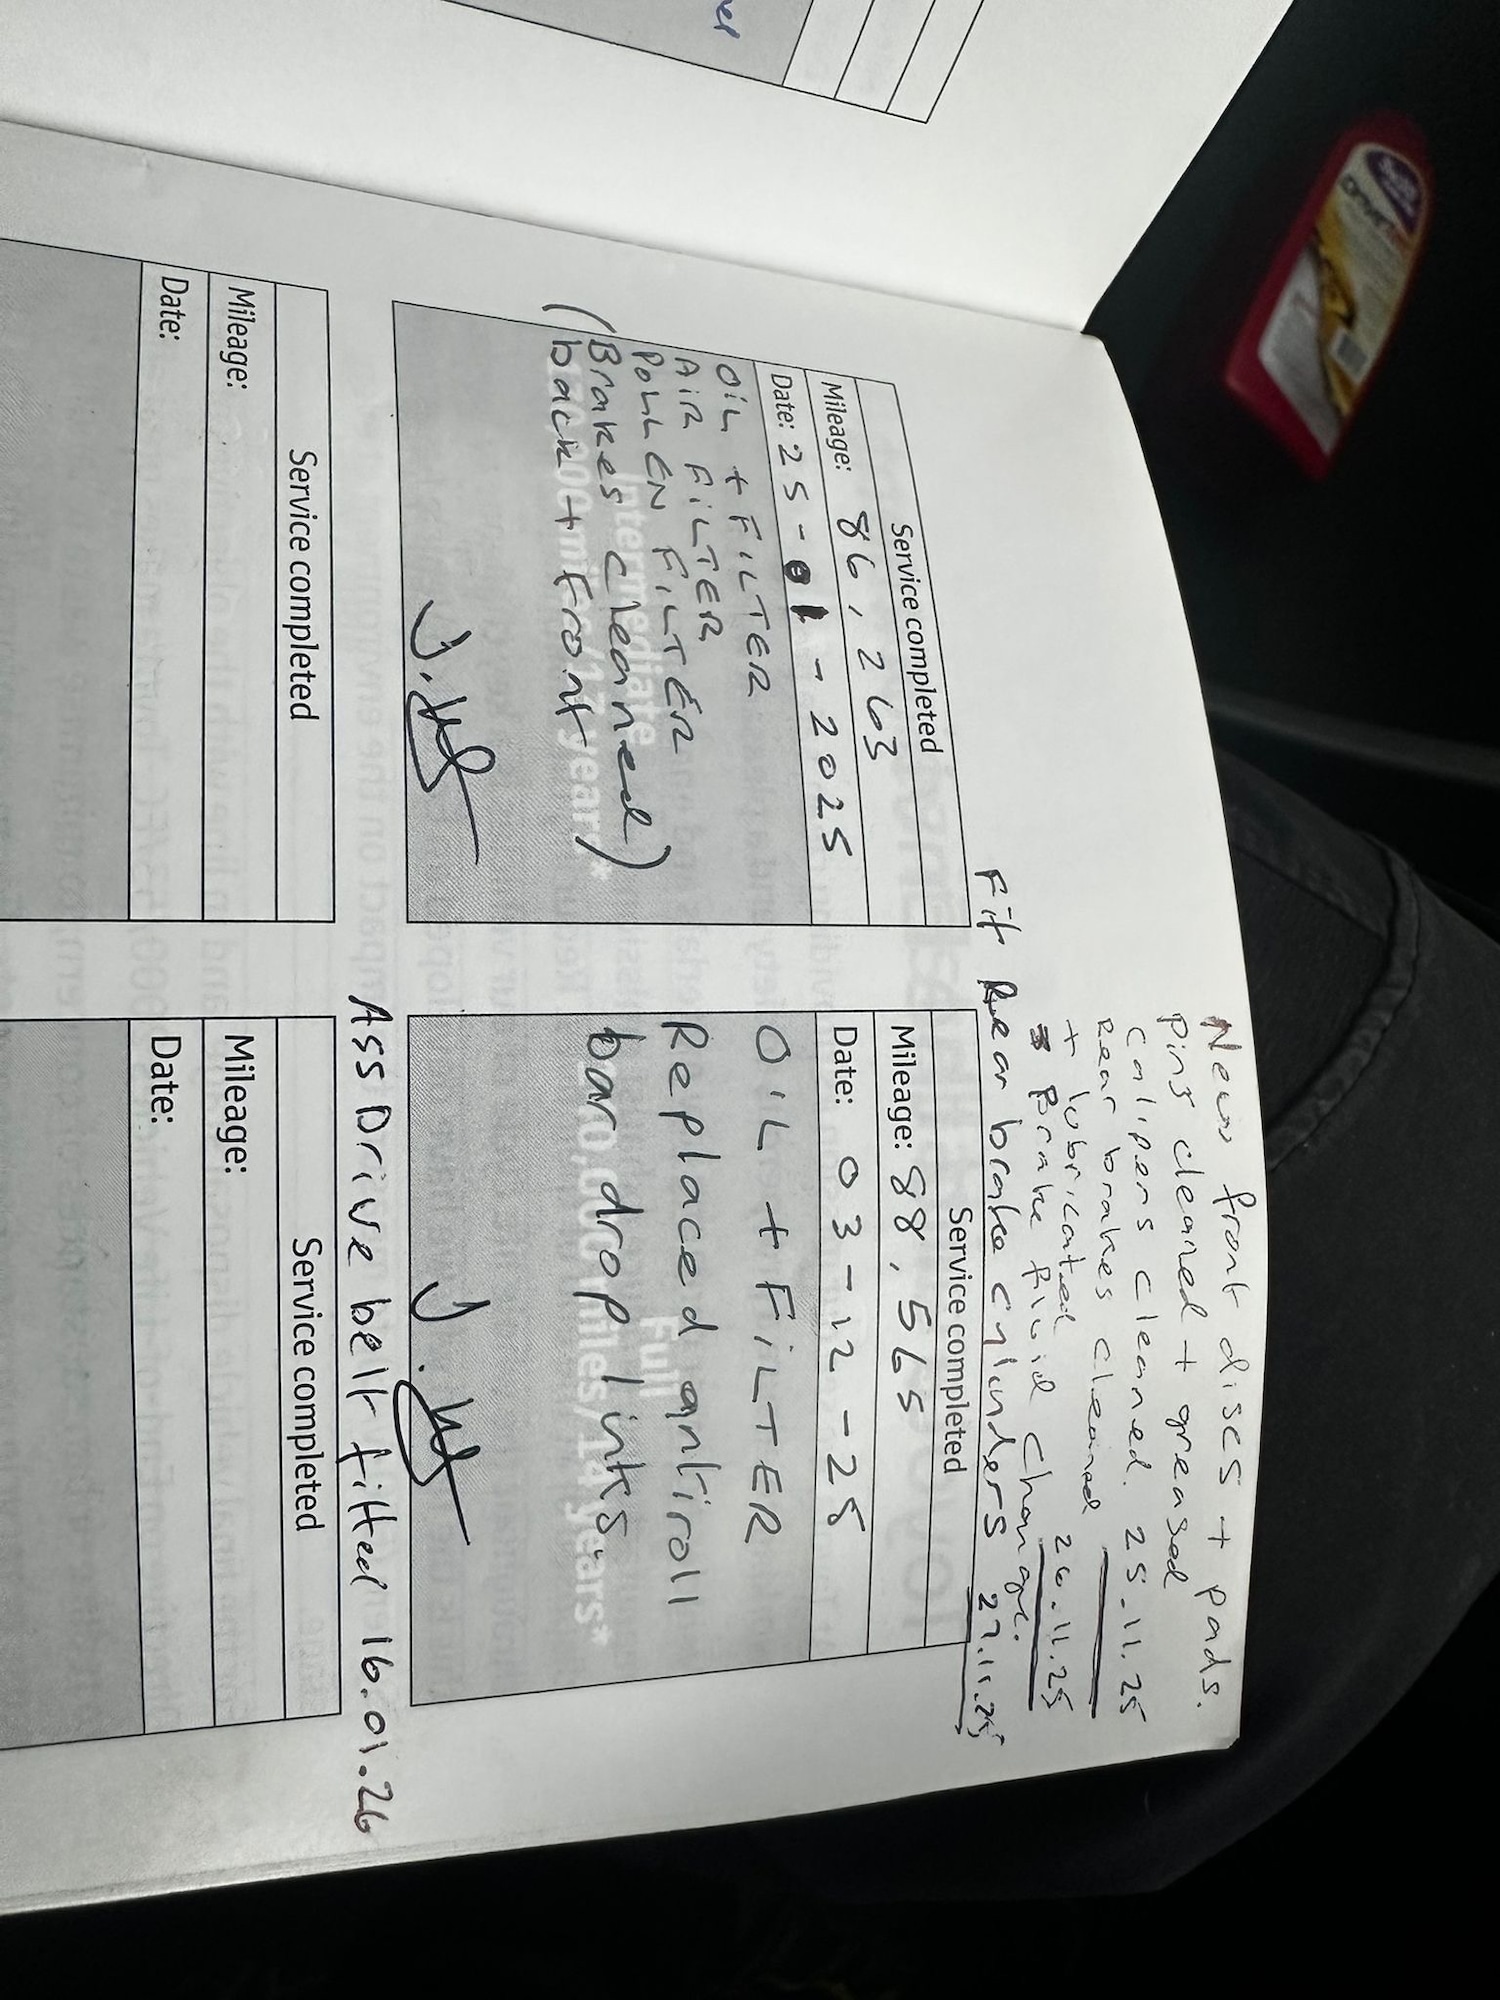 New front discs + pads.
Pins cleaned + greased
Calipers cleaned. 25.11.25
Rear brakes cleaned
+ lubricated 26.11.25
Brake fluid change.
Fit Rear brake cylinders 27.11.25
Service completed
Mileage: 86,263
Date: 25-01-2025
OIL + FILTER
AIR FILTER
POLLEN FILTER
(Brakes cleaned)
(back + Front)
J.
Service completed
Mileage: 88,565
Date: 03-12-25
OIL + FILTER
Replaced antiroll
bar drop links.
J.
Ass Drive belt fitted 16.01.26
Service completed
Mileage:
Date:
Service completed
Mileage:
Date: